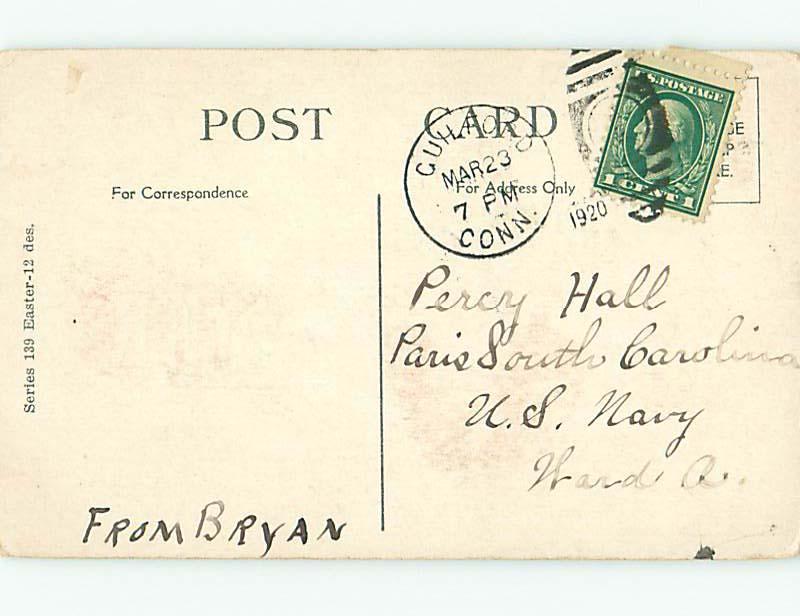 POST CARD
For Correspondence
For Address Only
Series 139 Easter-12 des.
GUILFORD
MAR 23
7 PM
CONN.
1920
U.S. POSTAGE
1 CENT 1
Percy Hall
Paris South Carolina
U.S. Navy
Ward A.
FROM BRYAN